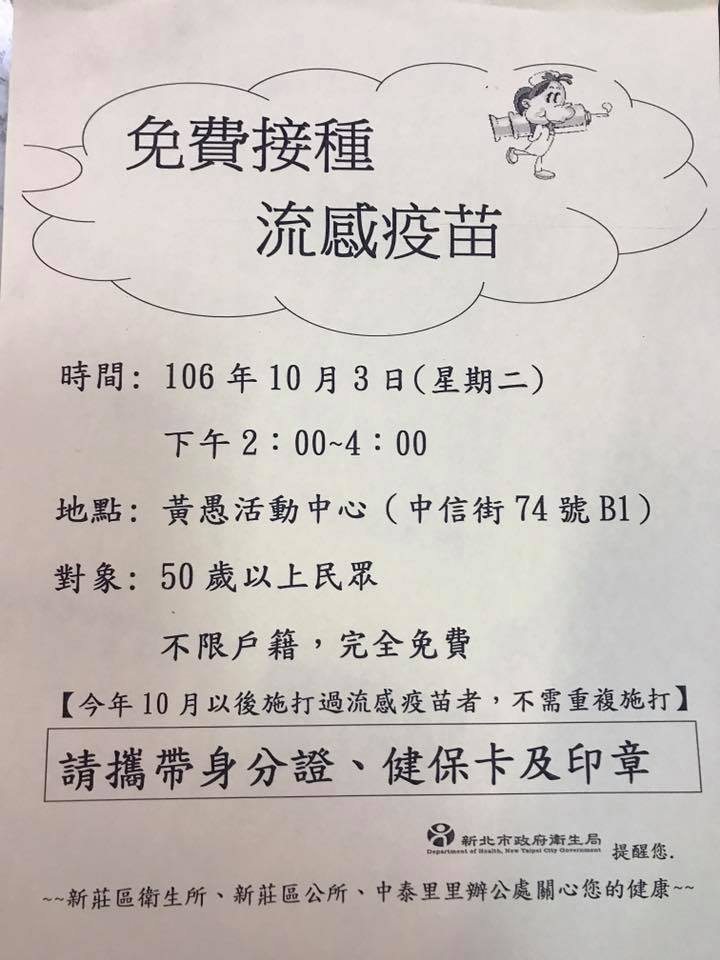 免費接種
流感疫苗
時間: 106 年 10 月 3 日(星期二)
下午 2：00~4：00
地點: 黃愚活動中心（中信街 74 號 B1）
對象: 50 歲以上民眾
不限戶籍，完全免費
【今年 10 月以後施打過流感疫苗者，不需重複施打】
請攜帶身分證、健保卡及印章
新北市政府衛生局
Department of Health, New Taipei City Government
提醒您.
~~新莊區衛生所、新莊區公所、中泰里里辦公處關心您的健康~~